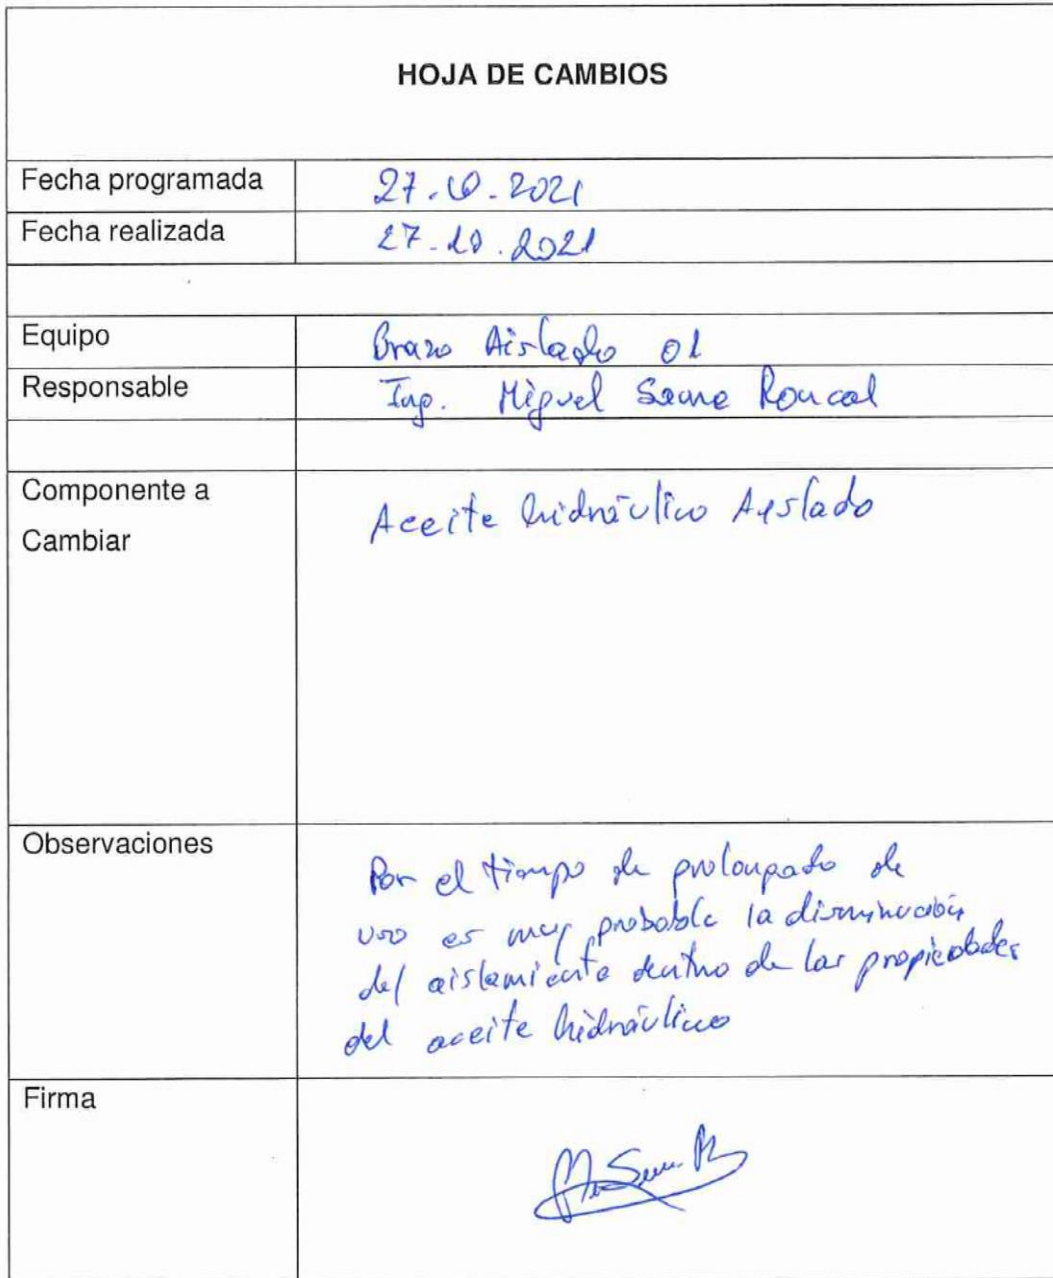 HOJA DE CAMBIOS
Fecha programada 27.10.2021
Fecha realizada 27.10.2021
Equipo Brazo Aislado 01
Responsable Ing. Miguel Roncal
Componente a Aceite hidráulico Aislado
Cambiar
Observaciones
Por el tiempo de prolongado de
uso es muy probable la disminución
del aislamiento dentro de las propiedades
del aceite hidráulico
Firma